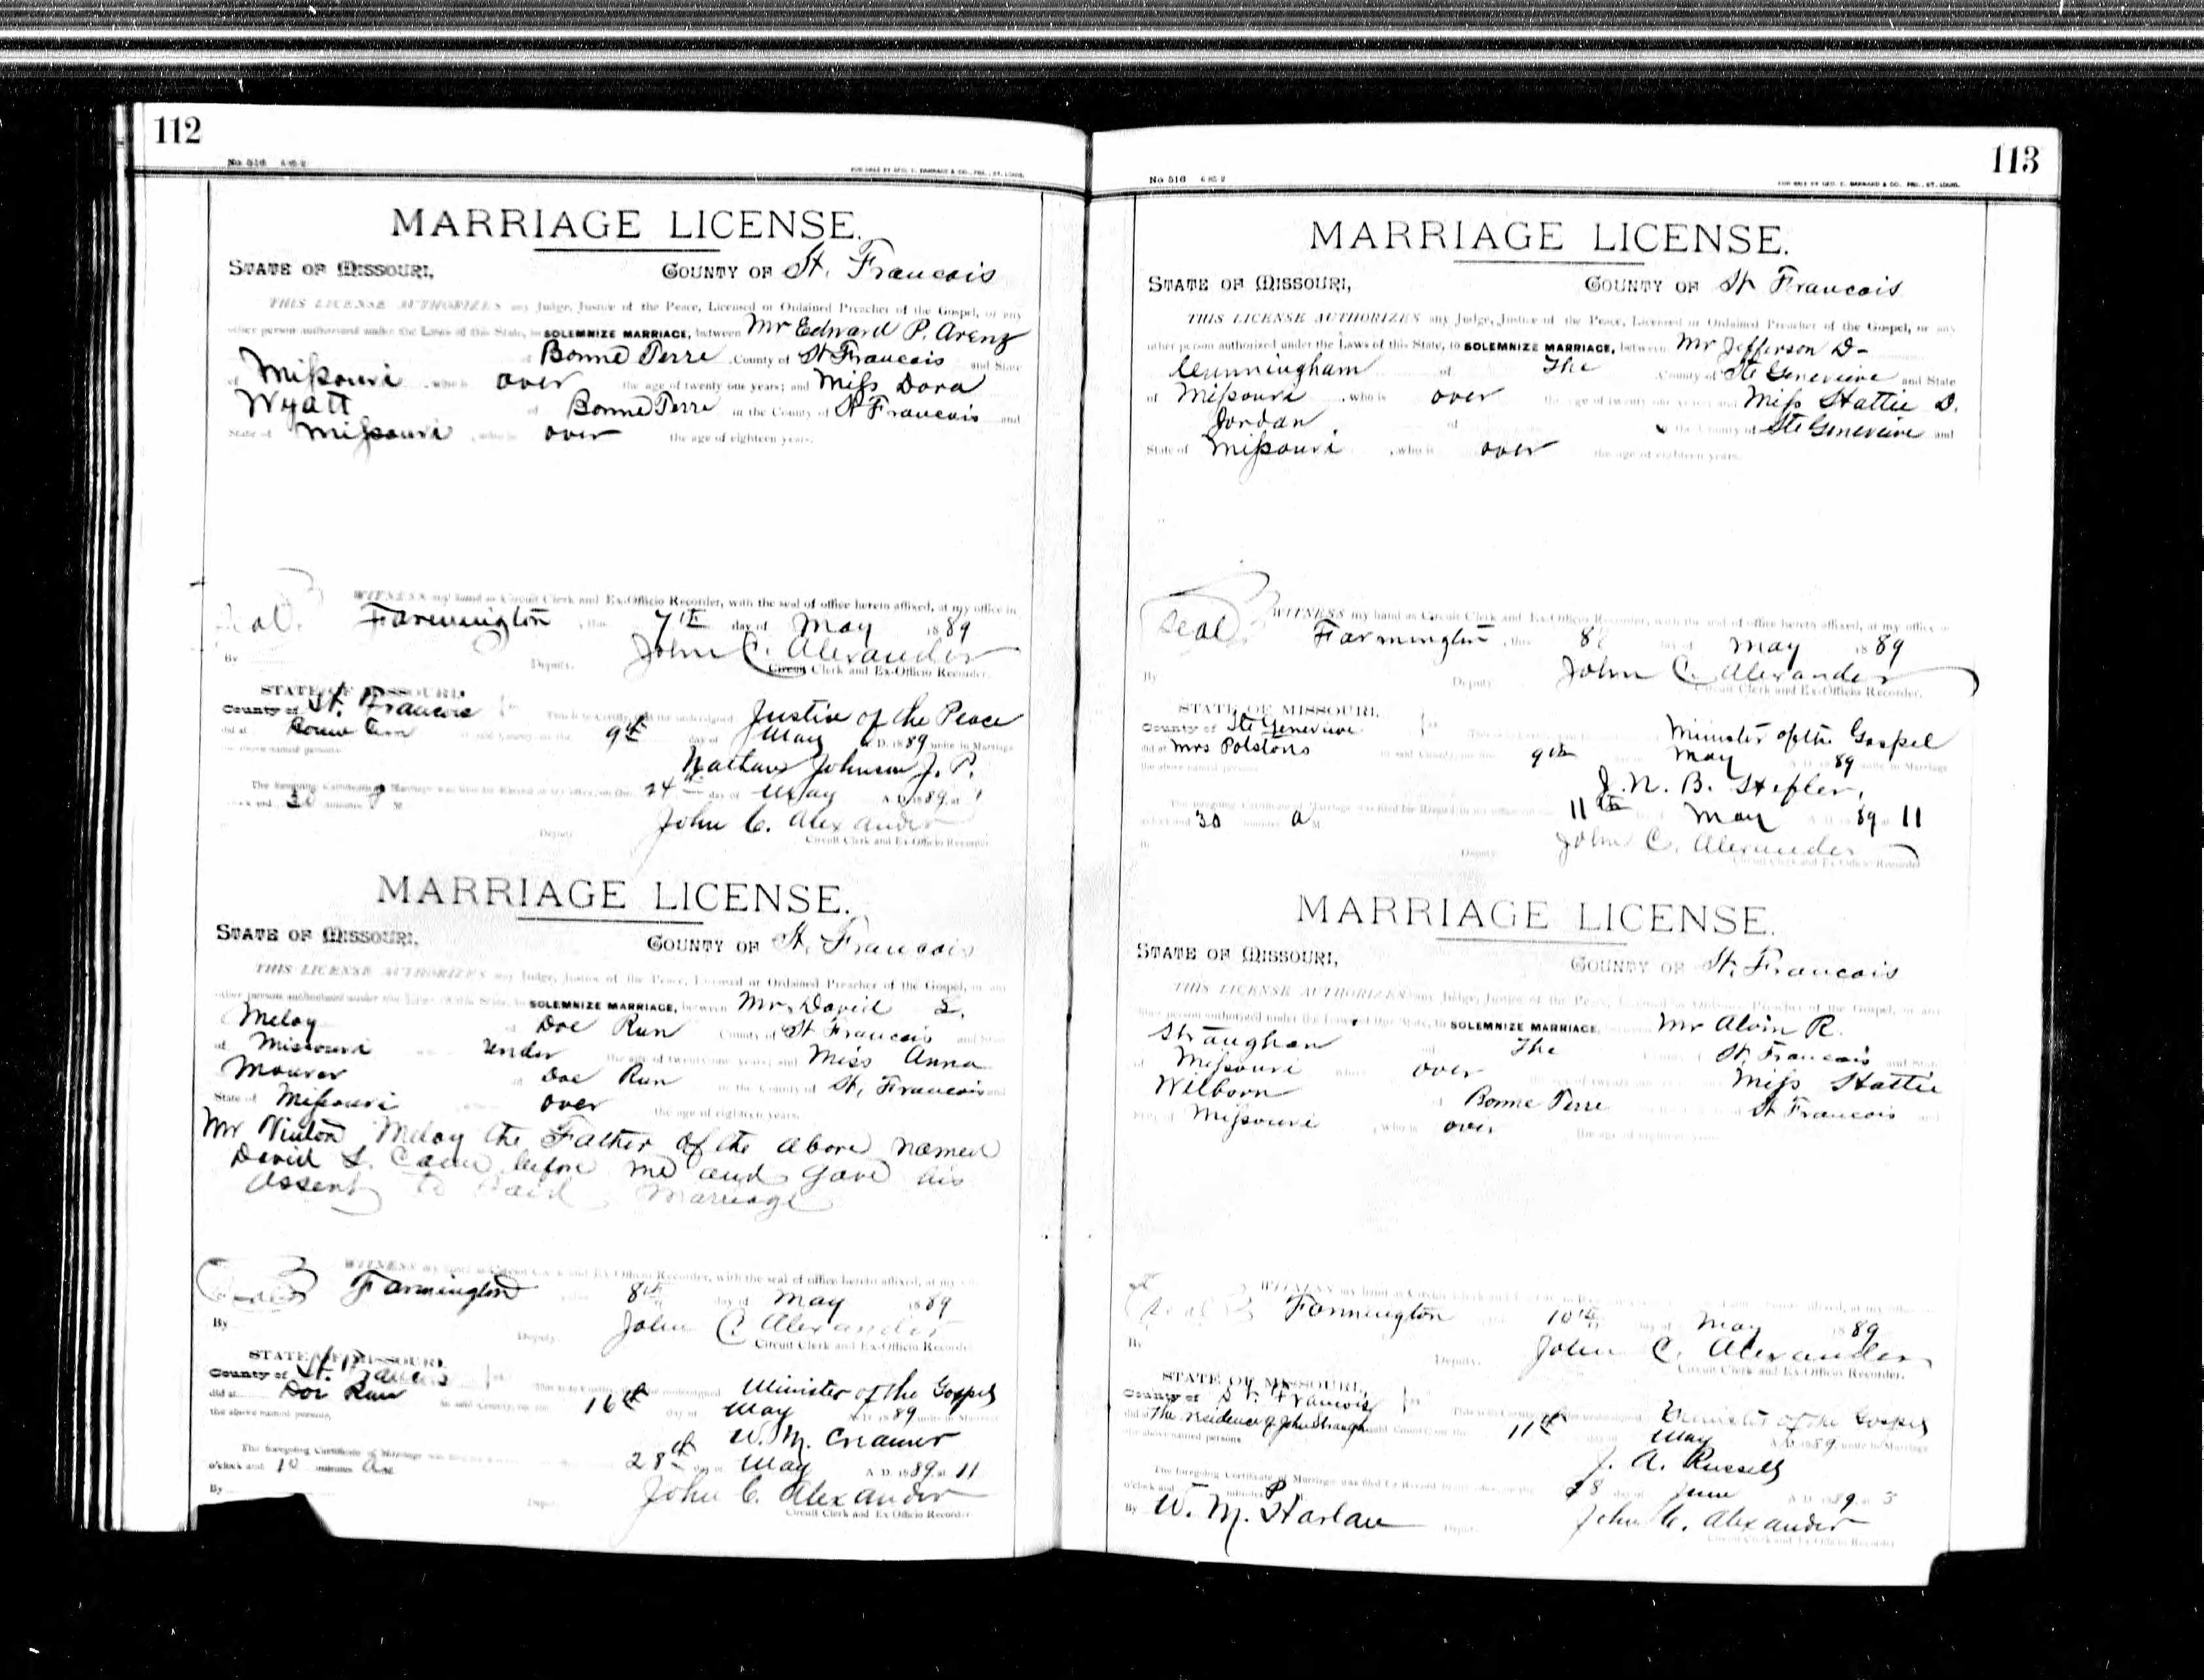 112
No 516
FOR SALE BY GEO. D. BARNARD & CO., PRS., ST. LOUIS.
MARRIAGE LICENSE.
STATE OF MISSOURI, COUNTY OF St. Francois
THIS LICENSE AUTHORIZES any Judge, Justice of the Peace, Licensed or Ordained Preacher of the Gospel, or any
other person authorized under the Laws of this State, to SOLEMNIZE MARRIAGE, between Mr Edward P. Arenz
of Bonne Terre County of St Francois and State
of Missouri, who is over the age of twenty one years; and Miss Dora
Wyatt of Bonne Terre in the County of St Francois and
State of Missouri, who is over the age of eighteen years.
WITNESS my hand as Circuit Clerk and Ex-Officio Recorder, with the seal of office hereto affixed, at my office in
Farmington, this 7th day of May 1889
John C. Alexander
By Deputy. Circuit Clerk and Ex-Officio Recorder.
STATE OF MISSOURI,
County of St. Francois This is to Certify, that the undersigned Justice of the Peace
did at Bonne Terre in said County, on the 9th day of May A. D. 1889 unite in Marriage
the above named persons. Nathan Johnson J. P.
The foregoing Certificate of Marriage was filed for Record in my office, on the 24th day of May A. D. 1889, at
o'clock and 30 minutes P M.
John C. Alexander
Deputy Circuit Clerk and Ex-Officio Recorder
MARRIAGE LICENSE.
STATE OF MISSOURI, COUNTY OF St. Francois
THIS LICENSE AUTHORIZES any Judge, Justice of the Peace, Licensed or Ordained Preacher of the Gospel, or any
other person authorized under the Laws of this State, to SOLEMNIZE MARRIAGE, between Mr David L.
Meloy of Doe Run County of St Francois and State
of Missouri who is under the age of twenty one years; and Miss Anna
Mourer of Doe Run in the County of St, Francois and
State of Missouri over the age of eighteen years.
Mr Vinton Meloy the Father of the above named
David L. Came before me and gave his
assent to said Marriage
WITNESS my hand as Circuit Clerk and Ex-Officio Recorder, with the seal of office hereto affixed, at my
Seal Farmington 8th day of May 1889
John C. Alexander
By Deputy. Circuit Clerk and Ex-Officio Recorder
STATE OF MISSOURI,
County of St. Francois This is to Certify, undersigned Minister of the Gospel
did at Doe Run in said County, on the 16th day of May A. D. 1889 unite in Marriage
the above named persons. W. M. Cramer
The foregoing Certificate of Marriage was 28th day of May A. D. 1889, at 11
o'clock and 10 minutes A M.
John C. Alexander
By Deputy Circuit Clerk and Ex Officio Recorder
113
No 516
FOR SALE BY GEO. D. BARNARD & CO., PRS., ST. LOUIS.
MARRIAGE LICENSE.
STATE OF MISSOURI, COUNTY OF St Francois
THIS LICENSE AUTHORIZES any Judge, Justice of the Peace, Licensed or Ordained Preacher of the Gospel, or any
other person authorized under the Laws of this State, to SOLEMNIZE MARRIAGE, between Mr Jefferson D-
Cunningham of The County of Ste Genevieve and State
of Missouri, who is over the age of twenty one years; and Miss Hattie D.
Jordan of the County of Ste Genevieve and
State of Missouri, who is over the age of eighteen years.
WITNESS my hand as Circuit Clerk and Ex-Officio Recorder, with the seal of office hereto affixed, at my office
Seal Farmington, this 8 day of May 1889
John C. Alexander
By Deputy Circuit Clerk and Ex-Officio Recorder.
STATE OF MISSOURI,
County of Ste Genevieve Minister of the Gospel
did at Mrs Polstons in said County, on the 9th May 89 unite in Marriage
the above named persons J. N. B. Hepler,
The foregoing Certificate of Marriage was filed for Record in my office on the 11th May 89 at 11
o'clock and 30 minutes A M.
John C. Alexander
By Deputy Circuit Clerk and Ex-Officio Recorder
MARRIAGE LICENSE.
STATE OF MISSOURI, COUNTY OF St. Francois
THIS LICENSE AUTHORIZES any Judge, Justice of the Peace, Licensed or Ordained Preacher of the Gospel, or any
other person authorized under the Laws of this State, to SOLEMNIZE MARRIAGE, Mr Alvin R.
Straughan of The St. Francois
of Missouri over Miss Hattie
Wilborn of Bonne Terre St Francois
Missouri, who is over the age of eighteen years
WITNESS my hand as Circuit Clerk
Seal Farmington 10th day of May 1889
John C. Alexander
By Deputy. Circuit Clerk and Ex-Officio Recorder.
STATE OF MISSOURI,
County of St. Francois Minister of the Gospel
did at The residence of John Straughn said County, on the 11th May A. D. 1889 unite in Marriage
the above named persons J. A. Russell
The foregoing Certificate of Marriage was filed for Record 28 day of June A. D. 1889 at 3
o'clock and minutes P M.
By W. M. Harlan Deputy John C. Alexander
Circuit Clerk and Ex-Officio Recorder